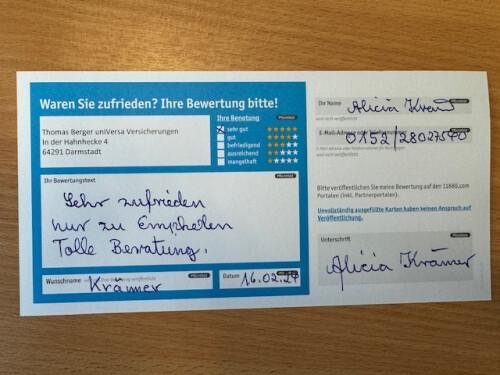 Waren Sie zufrieden? Ihre Bewertung bitte!
Thomas Berger uniVersa Versicherungen
In der Hahnhecke 4
64291 Darmstadt
Ihre Benotung
x sehr gut ★★★★★
gut
befriedigend
ausreichend
mangelhaft
Ihr Bewertungstext Pflichtfeld
Sehr zufrieden
nur zu Empfhelen
Tolle Beratung.
Wunschname
Krämer
Datum
16.02.24
Ihr Name Pflichtfeld
Alicia
wird nicht veröffentlicht
E-Mail-Adresse oder
0152/28027570
wird nicht veröffentlicht
Bitte veröffentlichen Sie meine Bewertung auf den 11880.com
Portalen (inkl. Partnerportalen).
Unvollständig ausgefüllte Karten haben keinen Anspruch auf
Veröffentlichung.
Unterschrift Pflichtfeld
Alicia Krämer